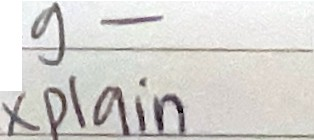 g —
xplain